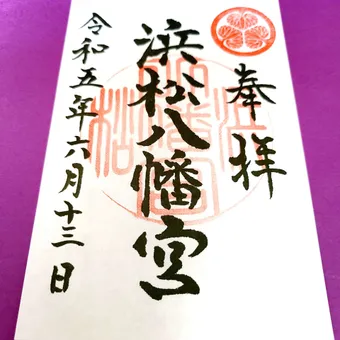 奉拝
浜松八幡宮
令和五年六月十三日